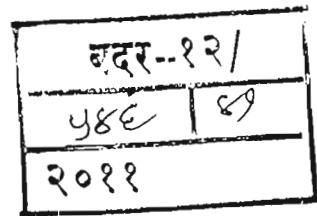 बदर--१२/
५४६ | ४१
२०११